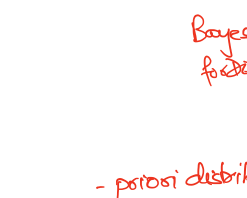 Bayes
- priori distrib